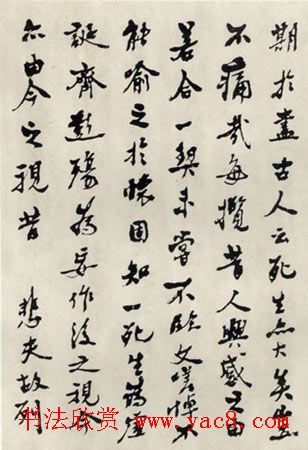 期於盡古人云死生亦大矣豈
不痛哉每攬昔人興感之由
若合一契未嘗不臨文嗟悼不
能喻之於懷固知一死生為虛
誕齊彭殤為妄作後之視今
亦由今之視昔 悲夫故列
书法欣赏 www.yac8.com